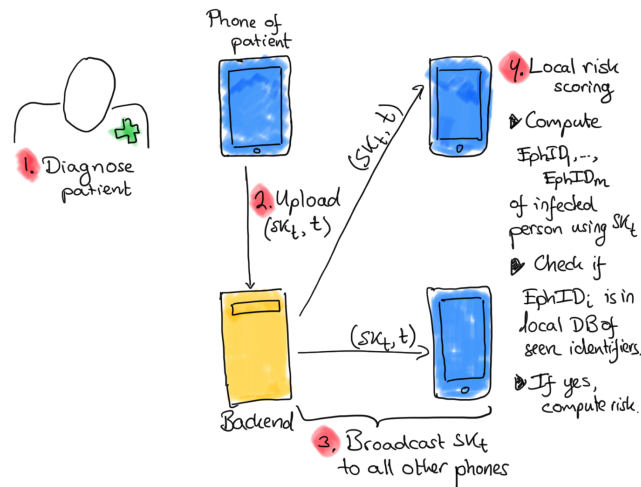 Phone of
patient
1. Diagnose
patient
2. Upload
(SKt, t)
Backend
(SKt, t)
(SKt, t)
3. Broadcast SKt
to all other phones
4. Local risk
scoring
Compute
EphID1,...,
EphIDm
of infected
person using SKt
Check if
EphIDi is in
local DB of
seen identifiers.
If yes,
compute risk.